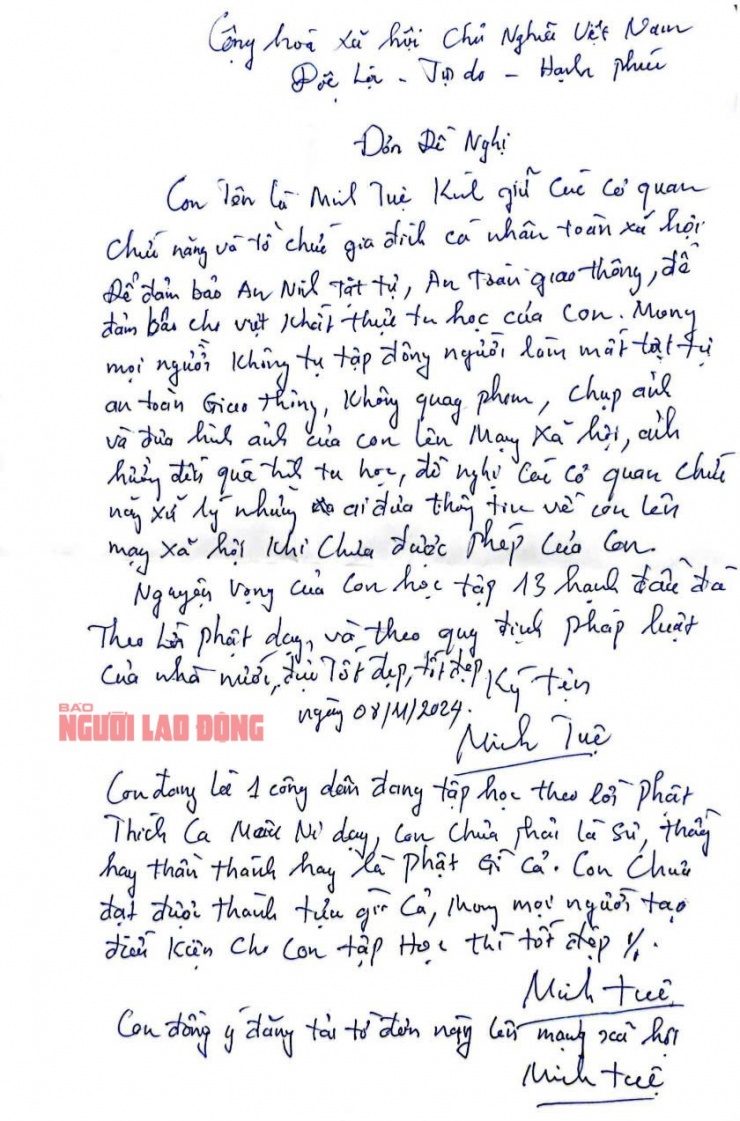 Cộng hoà xã hội Chủ Nghĩa Việt Nam
Độc Lập - Tự do - Hạnh phúc
Đơn Đề Nghị
Con Tên là Minh Tuệ Kính gửi Các cơ quan
Chức năng và tổ chức gia đình cá nhân toàn xã hội
Để đảm bảo An Ninh Trật tự, An toàn giao thông, để
đảm bảo cho việc Khất thực tu học của Con. Mong
mọi người Không tụ tập đông người làm mất trật tự
an toàn Giao Thông, Không quay phim, Chụp ảnh
và đưa hình ảnh của con lên Mạng Xã hội, ảnh
hưởng đến quá trình tu học, đề nghị Các cơ quan chức
năng xử lý những ai đưa thông tin về con lên
mạng xã hội Khi Chưa được Phép Của Con.
Nguyện Vọng của Con học tập 13 hạnh đầu đà
Theo lời phật dạy, và theo quy định pháp luật
Của nhà nước, được Tốt đẹp, tốt đẹp
Ký tên
ngày 08/11/2024.
Minh Tuệ
BÁO
NGƯỜI LAO ĐỘNG
Con đang là 1 công dân đang tập học theo lời phật
Thích Ca Mâu Ni dạy, con chưa phải là sư, thầy
hay thần thánh hay là phật gì cả. Con Chưa
đạt được thành tựu gì Cả, mong mọi người tạo
điều Kiện Cho Con tập Học thì tốt đẹp %.
Minh tuệ
Con đồng ý đăng tải tờ đơn này lên mạng xã hội
Minh tuệ